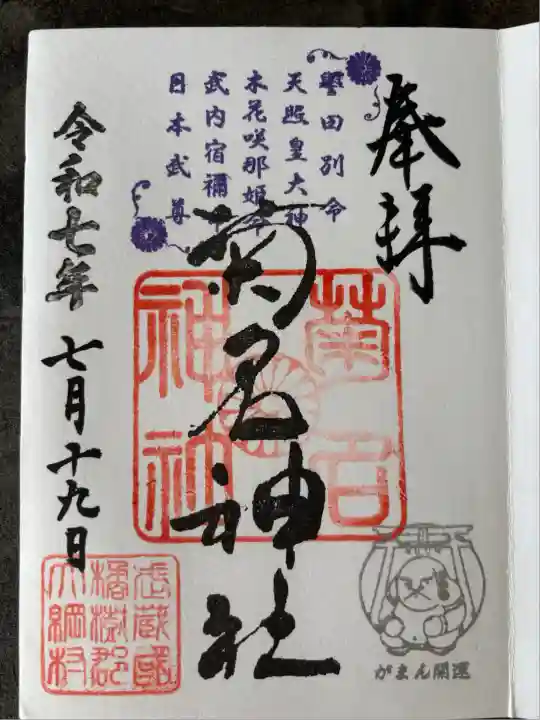 奉拝
誉田別命
天照皇大神
木花咲那姫命
武内宿禰
日本武尊
菊名神社
菊名
神社
令和七年 七月十九日
武蔵國
橘樹郡
大綱村
がまん開運